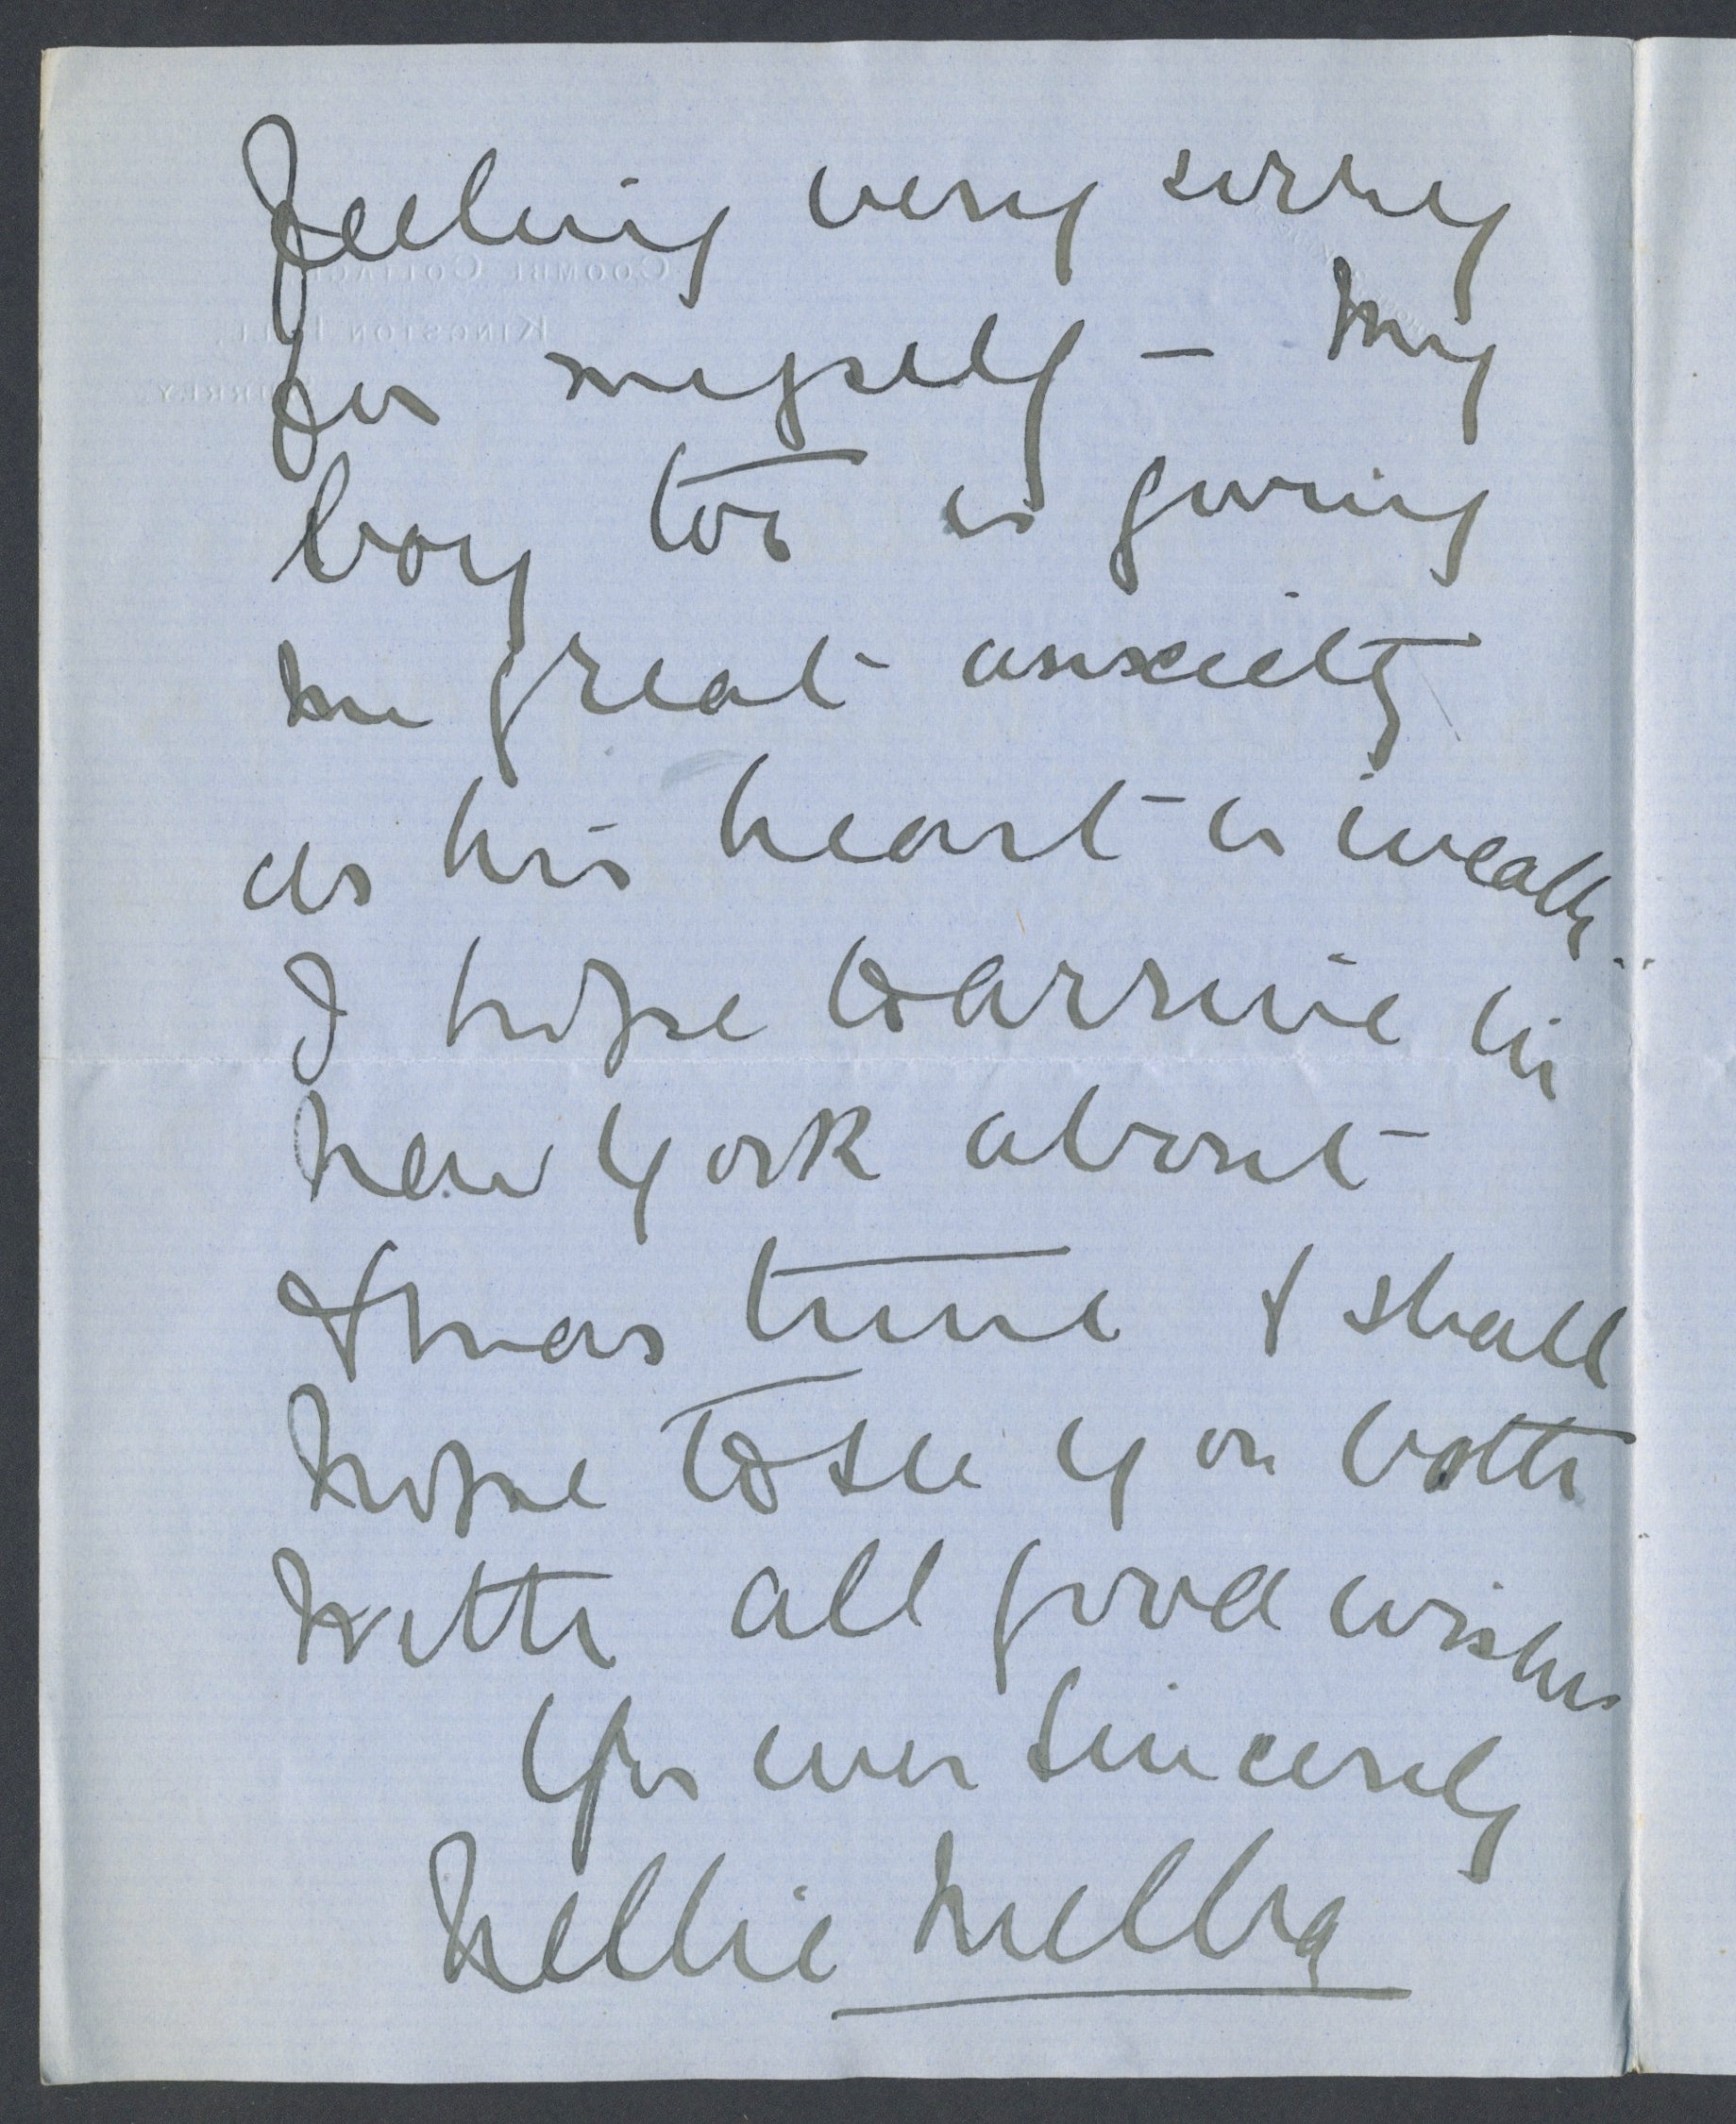 feeling very sorry
for myself - My
boy too is giving
me great anxiety
as his heart is weak..
I hope to arrive in
New York about
Xmas time & shall
hope to see you both
With all good wishes
Yrs ever Sincerely
Nellie Melba
COOMBE COTTAGE
KINGSTON HILL,
SURREY.